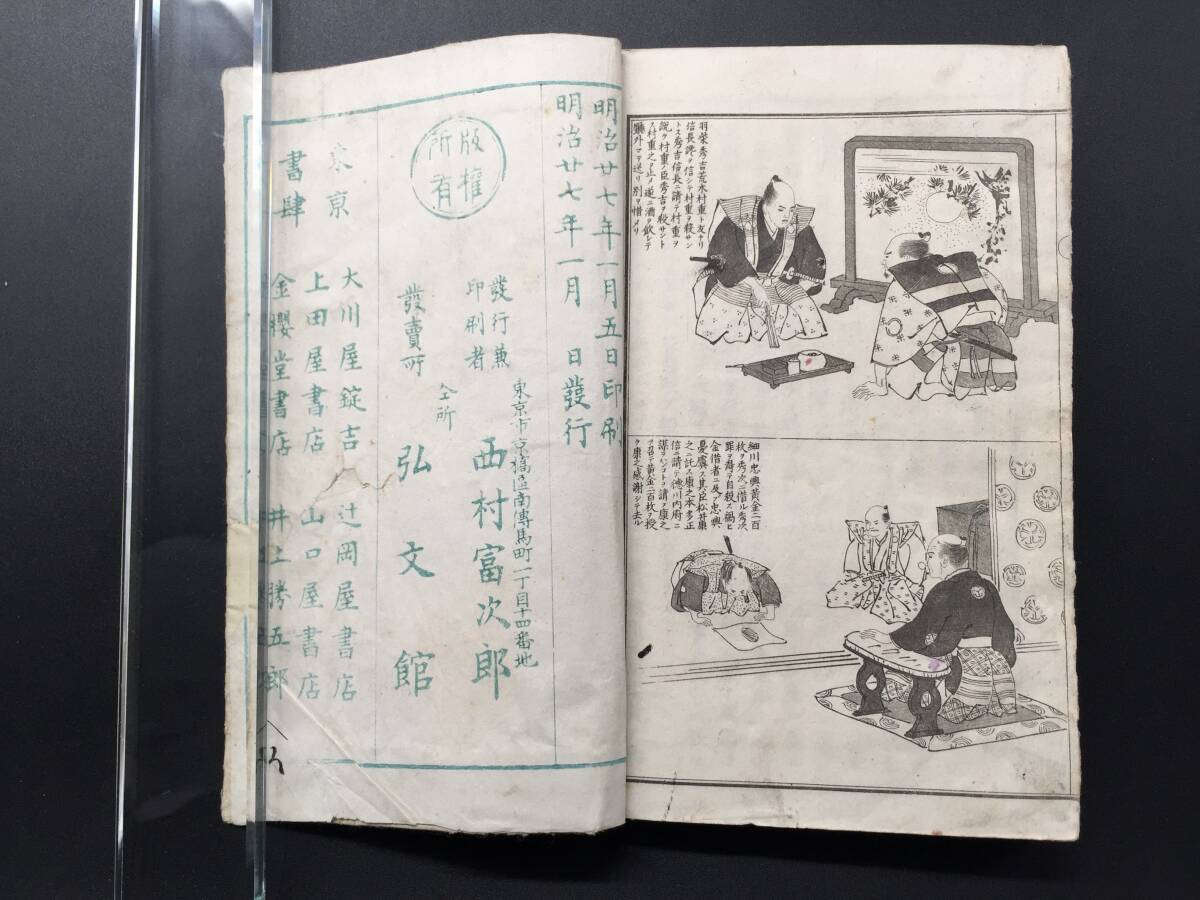 羽柴秀吉荒木村重ト友ナリ
信長讒ヲ信シテ村重ヲ殺サン
トス秀吉信長ニ請テ村重ヲ
説ク村重ノ臣秀吉ヲ殺サント
ス村重之ヲ止メ遂ニ酒ヲ飲シテ
門外マテ送リ別ヲ惜メリ
細川忠興黄金二百
枚ヲ秀次ニ借ル秀次
罪ヲ得テ自殺ス禍ヒ
金借者ニ及ブ忠興
憂虞ス其臣松井康
之ニ託ス康之本多正
信ニ請テ徳川内府ニ
謀ラシコトヲ請フ康之
ヲ召テ黄金二百枚ヲ授
ク康之感謝シテ去ル
明治廿七年一月五日印刷
明治廿七年一月 日發行
版權所有
東京市京橋區南傳馬町一丁目十四番地
發行兼
印刷者 西村富次郎
仝所
發賣所 弘文館
東京
書肆
大川屋錠吉 辻岡屋書店
上田屋書店 山口屋書店
金櫻堂書店 井上勝五郎